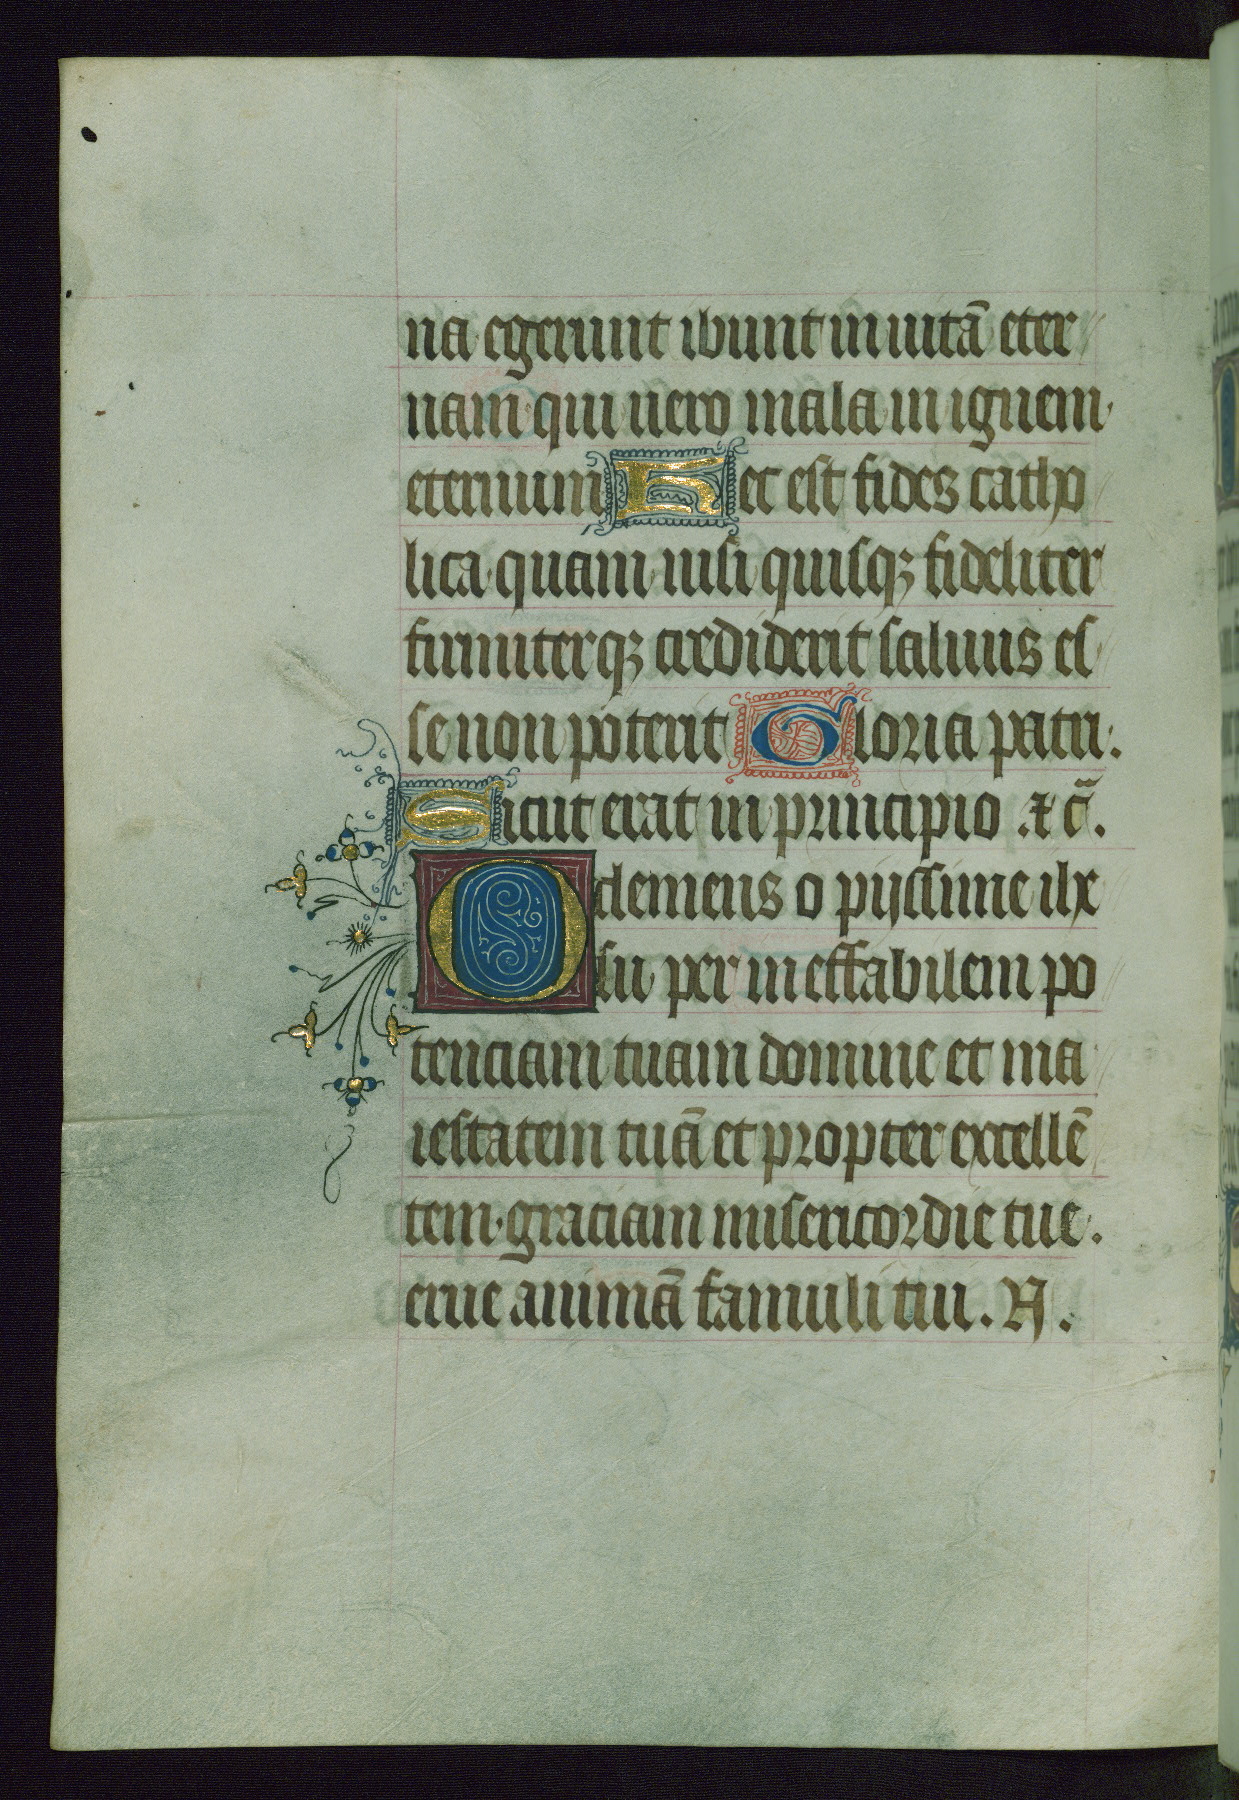 na egerunt ibunt in uitā eter
nam qui uero mala in ignem
eternum Hec est fides catho
lica quam nisi quisqꝫ fideliter
firmiterqꝫ crediderit saluus es
se non poterit Gloria patri.
Sicut erat in principio .⁊ c̄.
O clemens o pijssime ihe
su per ineffabilem po
tenciam tuam domine et ma
iestatem tuā et propter excellē
tem graciam misericordie tue.
erue animā famuli tui. N.